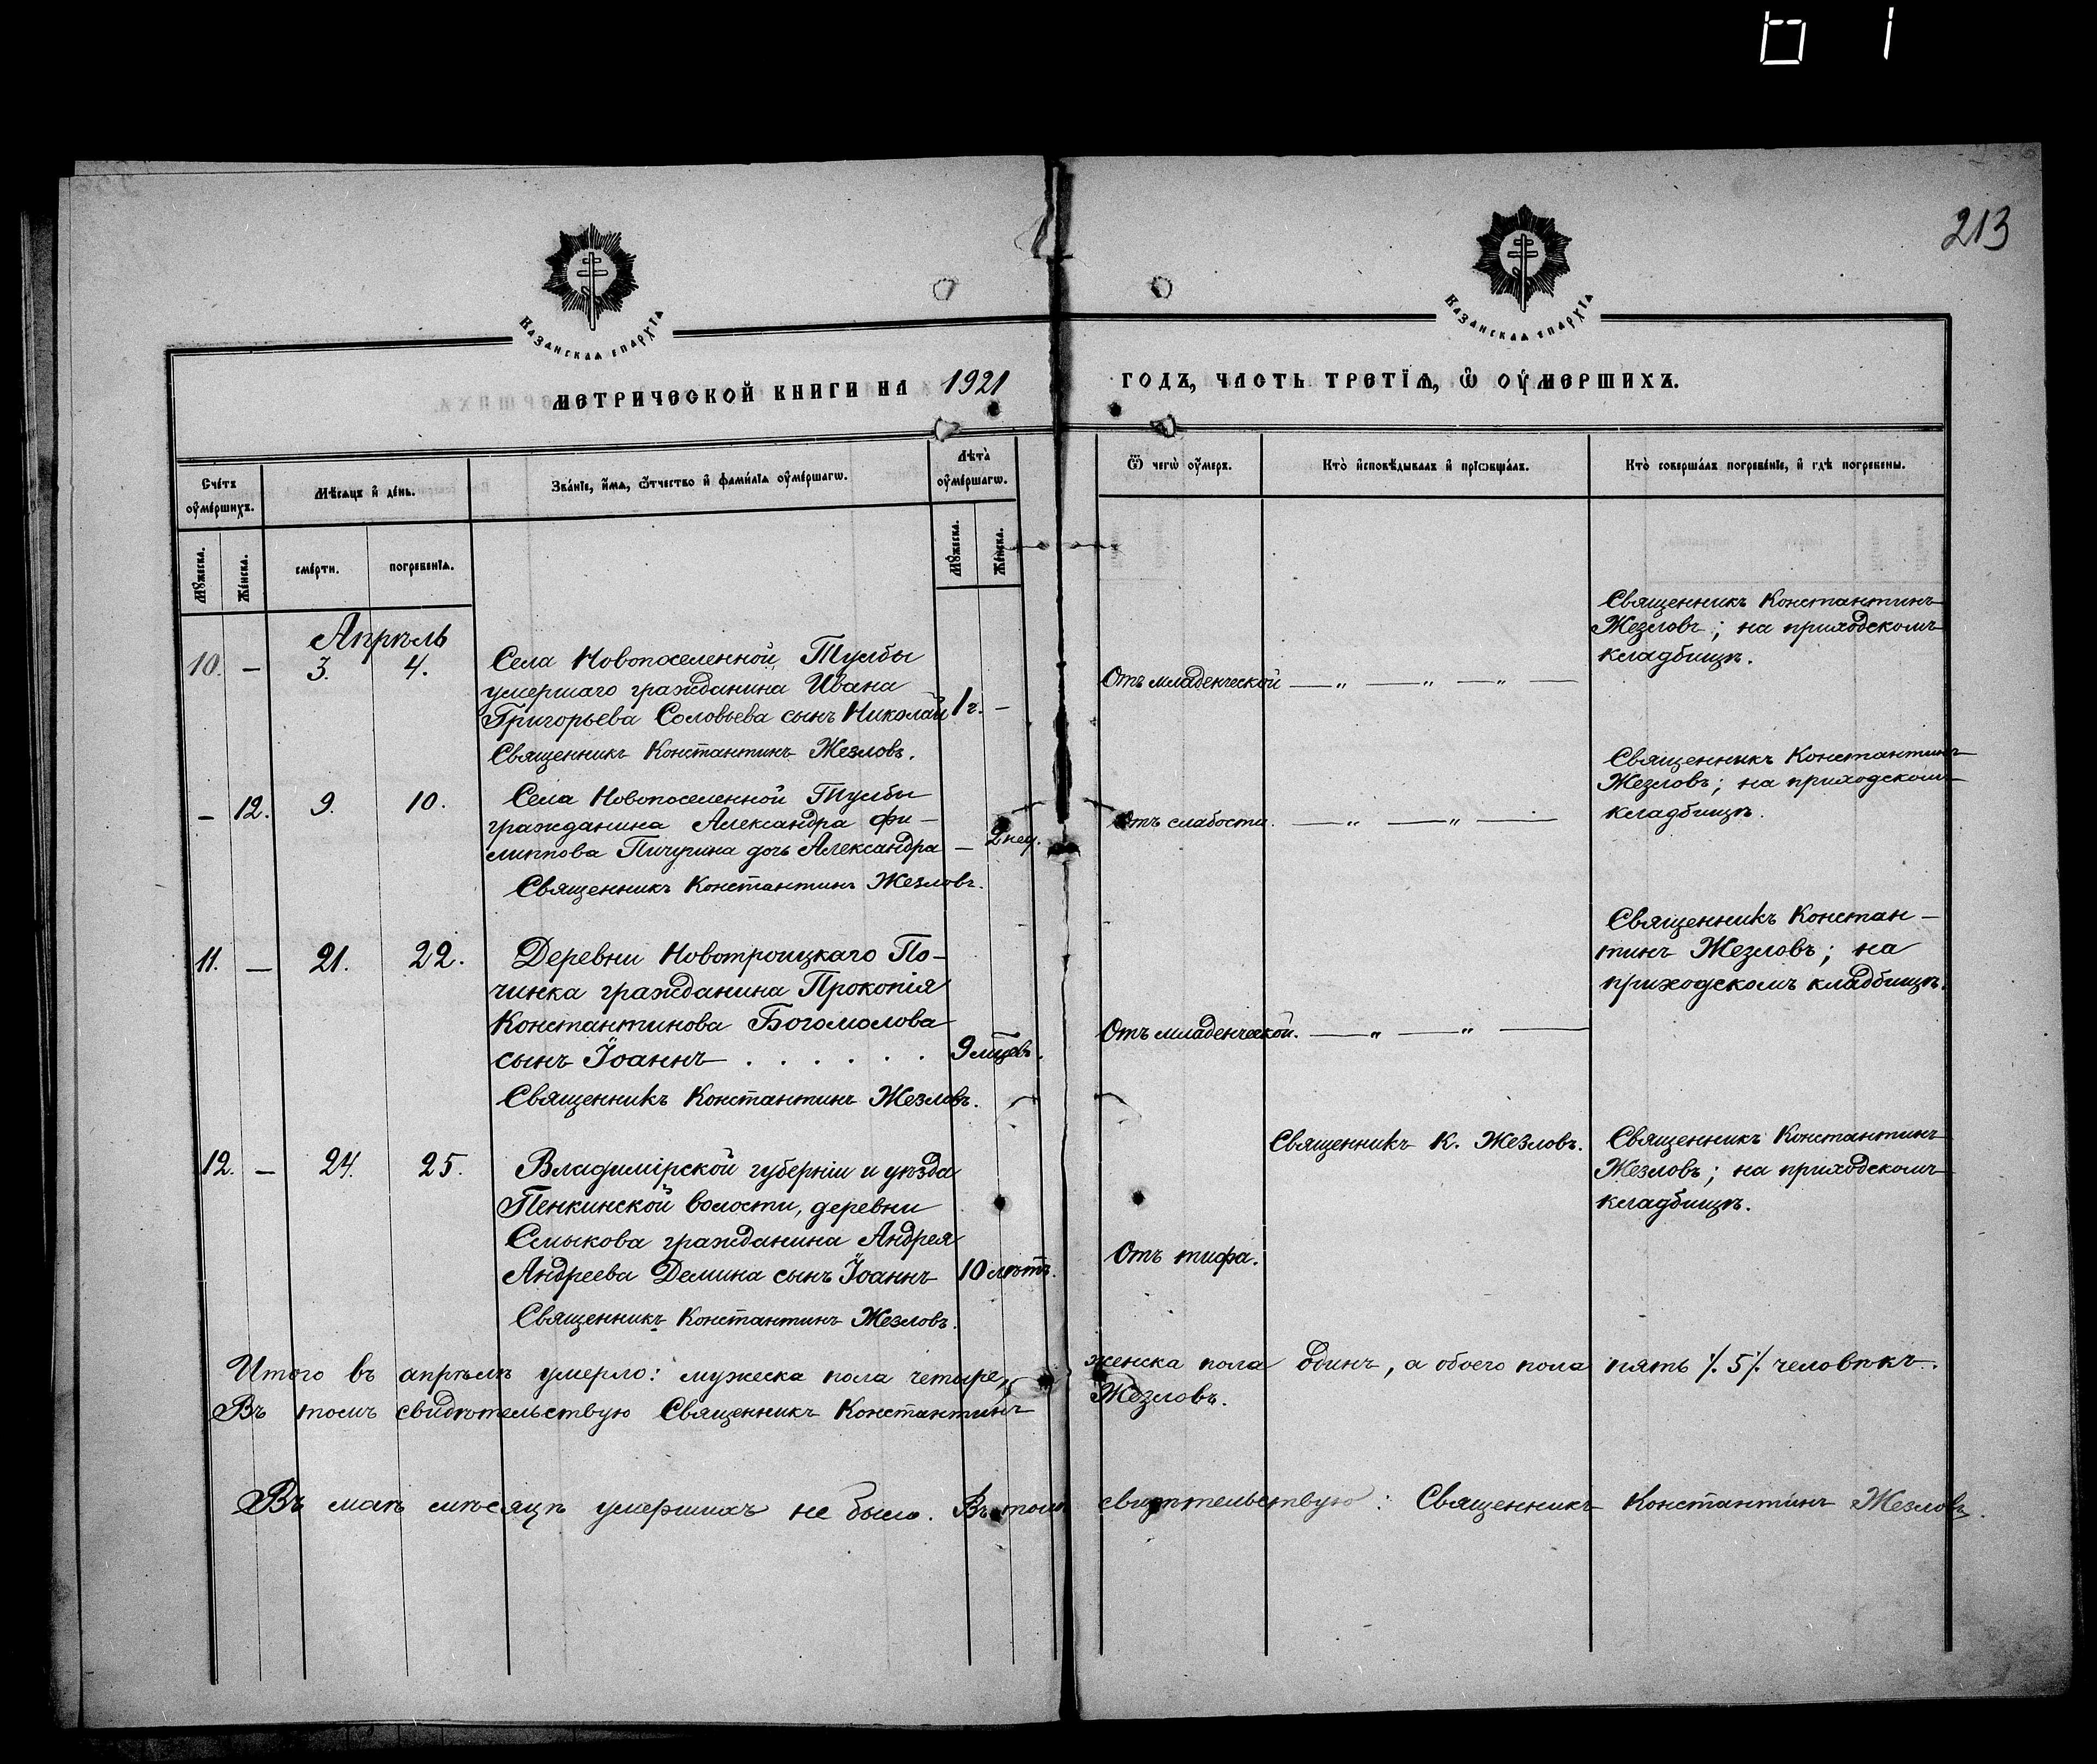 213
Казанская епархїа
Казанская епархїа
Метрической книги на 1921 годъ, часть третїѧ, ѽ оу҆мершихъ.
Сче́тъ оу҆ме́ршихъ.
Мѣ́сѧцъ и҆ де́нь.
Зва́нїе, и҆́мѧ, ѻ҆́тчество и҆ фамилїа оу҆ме́ршагѡ.
Лѣта̀ оу҆ме́ршагѡ.
Ѿ чегѡ̀ оу҆́меръ.
Кто̀ и҆сповѣ́дывалъ и҆ прїѡбща́лъ.
Кто̀ соверша́лъ погребе́нїе, и҆ гдѣ̀ погребены.
Мꙋжеска.
Же́нска.
сме́рти.
погребенїѧ.
Мꙋ́жеска.
Же́нска.
Апрѣль
10. — 3. 4.
Села Новопоселенной Тулбы
умершаго гражданина Ивана
Григорьева Соловьева сынъ Николай 1 г. —
Священникъ Константинъ Жезловъ.
Отъ младенческой — „ — „ — „ —
Священникъ Константинъ
Жезловъ; на приходскомъ
кладбищѣ.
— 12. 9. 10.
Села Новопоселенной Тулбы
гражданина Александра Фи-
липпова Пичугина дочь Александра — 2 нед.
Священникъ Константинъ Жезловъ.
Отъ слабости. — „ — „ —
Священникъ Константинъ
Жезловъ; на приходскомъ
кладбищѣ.
11. — 21. 22.
Деревни Новотроицкаго По-
чинка гражданина Прокопія
Константинова Богомолова
сынъ Іоаннъ . . . . . . 9 мцевъ.
Священникъ Константинъ Жезловъ.
Отъ младенческой. — „ — „ —
Священникъ Констан-
тинъ Жезловъ; на
приходскомъ кладбищѣ.
12. — 24. 25.
Владимірской губерніи и уѣзда
Пенкинской волости, деревни
Смыкова гражданина Андрея
Андреева Демина сынъ Іоаннъ 10 лѣтъ.
Священникъ Константинъ Жезловъ.
Отъ тифа.
Священникъ К. Жезловъ.
Священникъ Константинъ
Жезловъ; на приходскомъ
кладбищѣ.
Итого въ апрѣлѣ умерло: мужеска пола четыре, женска пола одинъ, а обоего пола пять ٪ 5 ٪ человѣкъ.
Въ томъ свидѣтельствую Священникъ Константинъ Жезловъ.
Въ маѣ мѣсяцѣ умершихъ не было. Въ томъ свидѣтельствую: Священникъ Константинъ Жезловъ.